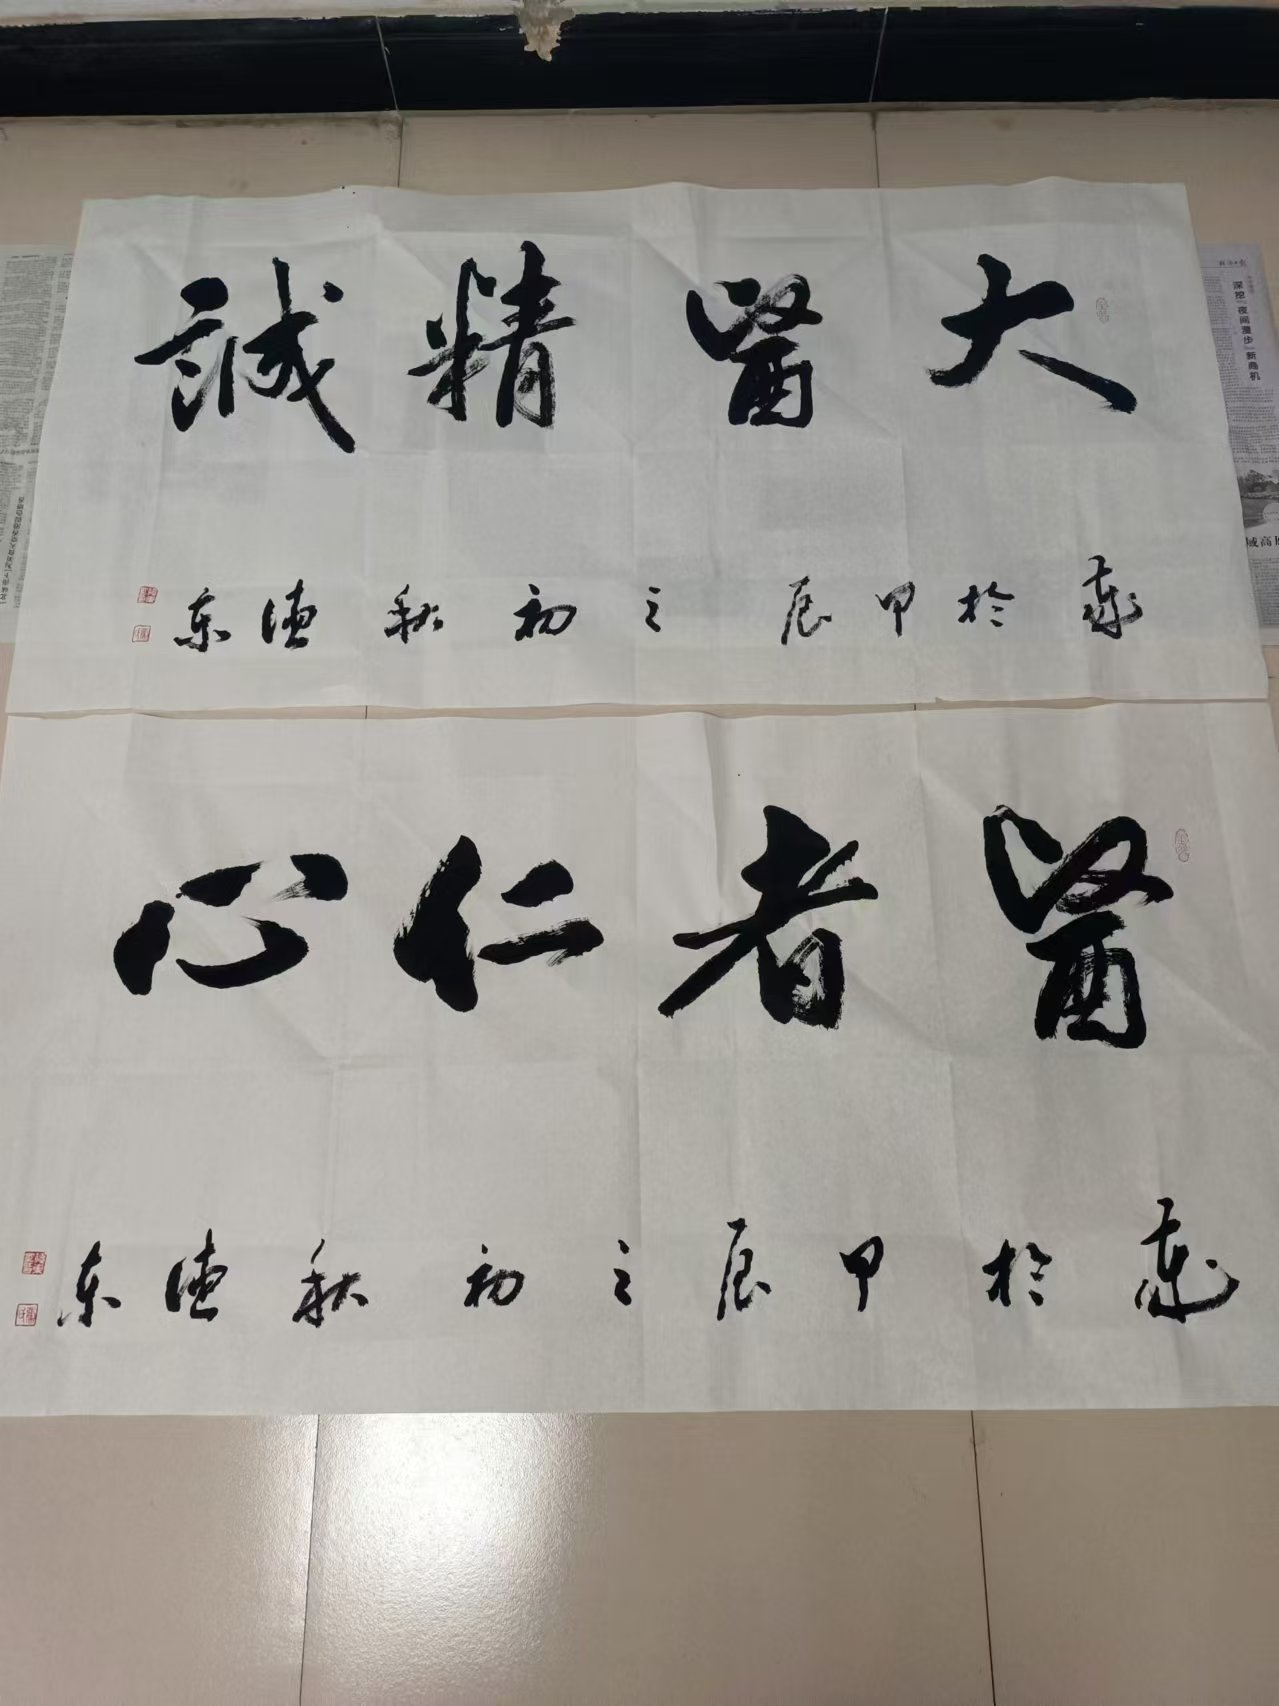 大醫精誠
歲於甲辰之初秋德东
醫者仁心
歲於甲辰之初秋德东
深挖“夜间漫步”新商机